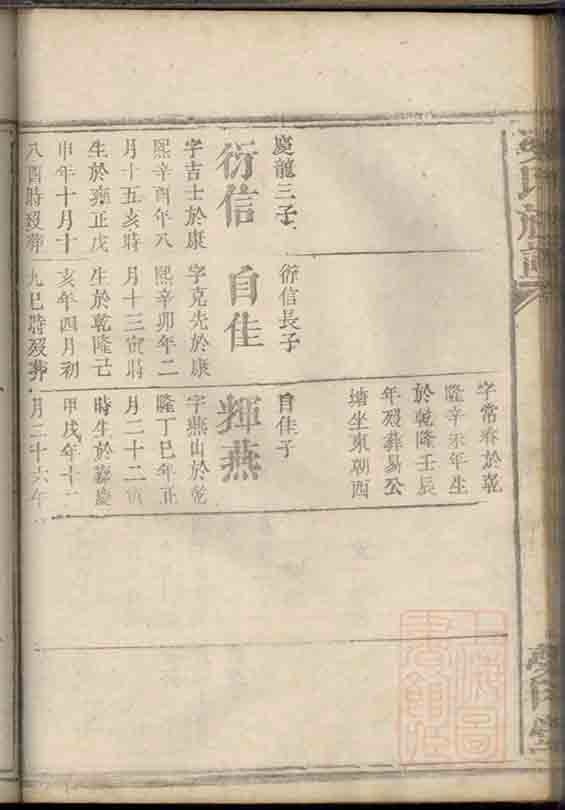 慶龍三子
衍信
字吉士於康
熙辛酉年八
月十五亥時
生於雍正戊
申年十月十
八酉時歿葬
衍信長子
自佳
字克先於康
熙辛卯年二
月十三寅時
生於乾隆己
亥年四月初
九巳時歿葬
字常春於乾
隆辛未年生
於乾隆壬辰
年歿葬易公
塘坐東朝西
自佳子
輝燕
字燕山於乾
隆丁巳年正
月二十二寅
時生於嘉慶
甲戌年十二
月二十六午
氏族譜